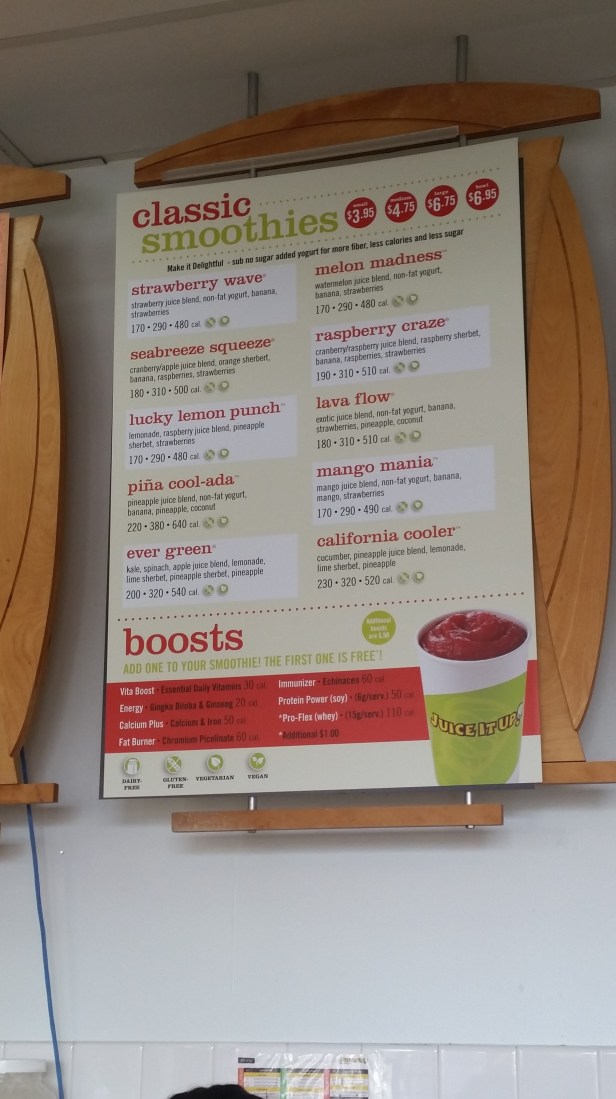 classic
smoothies
small
$3.95
medium
$4.75
large
$6.75
bowl
$6.95
Make it Delightful - sub no sugar added yogurt for more fiber, less calories and less sugar
strawberry wave®
strawberry juice blend, non-fat yogurt, banana,
strawberries
170 • 290 • 480 cal.
seabreeze squeeze®
cranberry/apple juice blend, orange sherbert,
banana, raspberries, strawberries
180 • 310 • 500 cal.
lucky lemon punch™
lemonade, raspberry juice blend, pineapple
sherbet, strawberries
170 • 290 • 480 cal.
piña cool-ada™
pineapple juice blend, non-fat yogurt,
banana, pineapple, coconut
220 • 380 • 640 cal.
ever green®
kale, spinach, apple juice blend, lemonade,
lime sherbet, pineapple sherbet, pineapple
200 • 320 • 540 cal.
melon madness™
watermelon juice blend, non-fat yogurt,
banana, strawberries
170 • 290 • 480 cal.
raspberry craze®
cranberry/raspberry juice blend, raspberry sherbet,
banana, raspberries, strawberries
190 • 310 • 510 cal.
lava flow®
exotic juice blend, non-fat yogurt, banana,
strawberries, pineapple, coconut
180 • 310 • 510 cal.
mango mania™
mango juice blend, non-fat yogurt, banana,
mango, strawberries
170 • 290 • 490 cal.
california cooler™
cucumber, pineapple juice blend, lemonade,
lime sherbet, pineapple
230 • 320 • 520 cal.
boosts
Additional
boosts
are
ADD ONE TO YOUR SMOOTHIE! THE FIRST ONE IS FREE*!
Vita Boost - Essential Daily Vitamins 30 cal.
Energy - Gingko Biloba & Ginseng 20 cal.
Calcium Plus - Calcium & Iron 50 cal.
Fat Burner - Chromium Picolinate 60 cal.
Immunizer - Echinacea 60 cal.
Protein Power (soy) - (6g/serv.) 50 cal.
*Pro-Flex (whey) - (15g/serv.) 110 cal.
*Additional $1.00
JUICE IT UP!
DAIRY-
FREE
GLUTEN-
FREE
VEGETARIAN
VEGAN